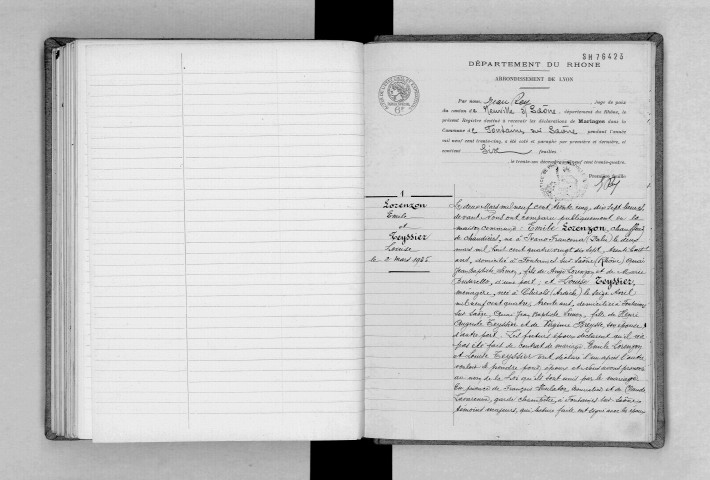 SH76425
DÉPARTEMENT DU RHÔNE
ARRONDISSEMENT DE LYON
Par nous, Jean Rey, juge de paix
du canton de Neuville s/ Saône, département du Rhône, le
présent Registre destiné à recevoir les déclarations de Mariages dans la
Commune de Fontaines sur Saône pendant l'année
mil neuf cent trente-cinq, a été coté et paraphé par première et dernière, et
contient feuilles
le trente-un décembre mil neuf cent trente-quatre.
Première feuille
1
Lorenzon
Emile
et
Teyssier
Louise
le 2 mars 1935
Le deux Mars mil neuf cent trente cinq, dix sept heures
devant Nous ont comparu publiquement en la
maison commune : Emile Lorenzon, chauffeur
de chaudières, né à (Italie) le deux
mars mil huit cent quatre vingt dix sept, trente huit
ans, domicilié à Fontaines sur Saône (Rhône) Quai
Jean Baptiste Simon, fils de Lorenzon et de Marie
d'une part ; et Louise Teyssier,
ménagère, née à (Ardèche) le seize Avril
mil neuf cent quatre, trente ans, domiciliée à Fontaines
sur Saône, Quai Jean Baptiste Simon, fille de Henri
Auguste Teyssier et de Virginie Breysse, son épouse,
d'autre part. Les futurs époux déclarent qu'il n'a
pas été fait de contrat de mariage. Emile Lorenzon
et Louise Teyssier ont déclaré l'un après l'autre
vouloir se prendre pour époux et Nous avons prononcé
au nom de la Loi qu'ils sont unis par le mariage.
En présence de François et de Claude
garde champêtre, à Fontaines sur Saône
témoins majeurs, qui lecture faite ont signé avec les époux